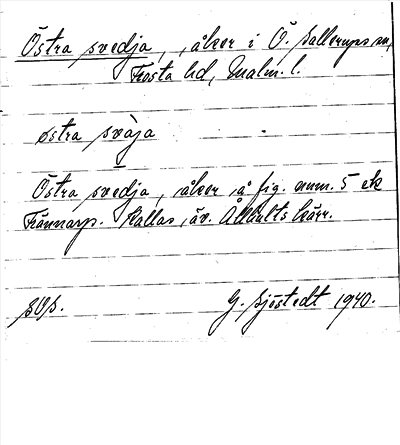 Östra svedja, åker i Ö. Sallerups sn,
Frosta hd, Malm. l.
östra svàja
Östra svedja, åker å fig. num. 5 ek
Frännarp. Kallas äv. Kärr.
G. Sjöstedt 1940.